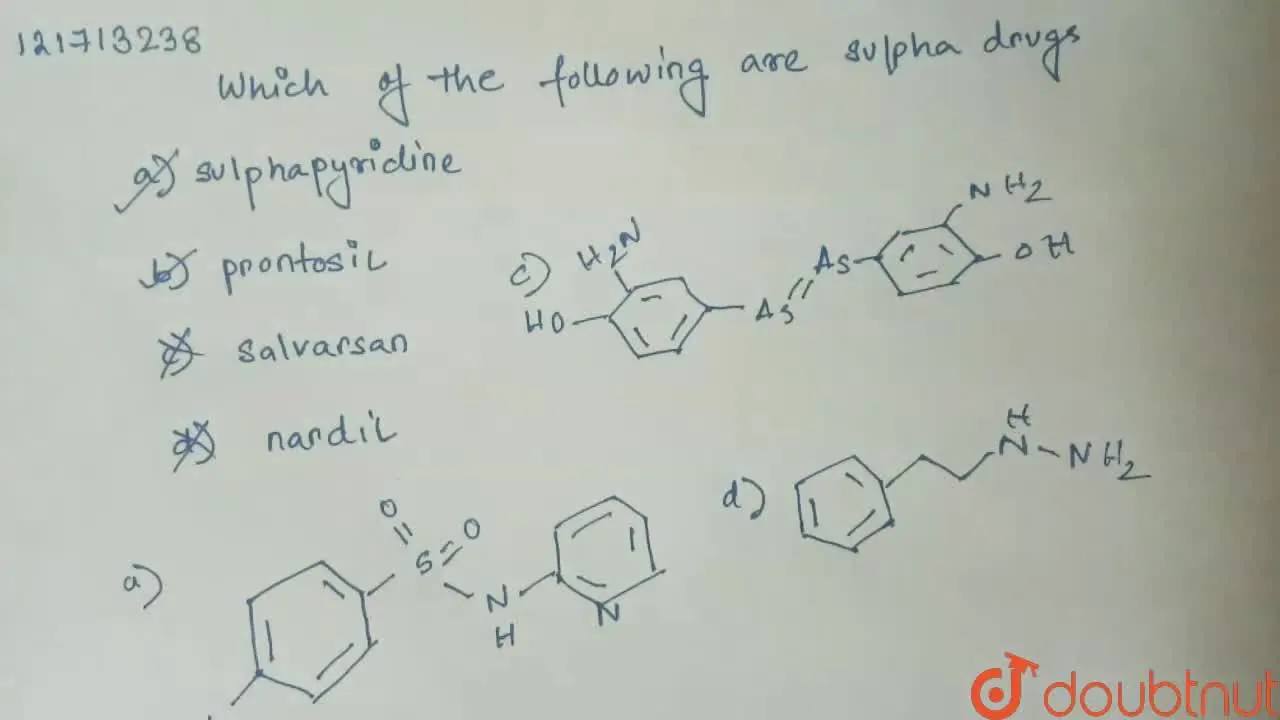 121713238
Which of the following are sulpha drugs
a) sulphapyridine
b) prontosil
c) salvarsan
d) nardil
c) H2N
HO
As
As
NH2
OH
d)
H
N
NH2
a)
O
O
S
N
H
N
doubtnut